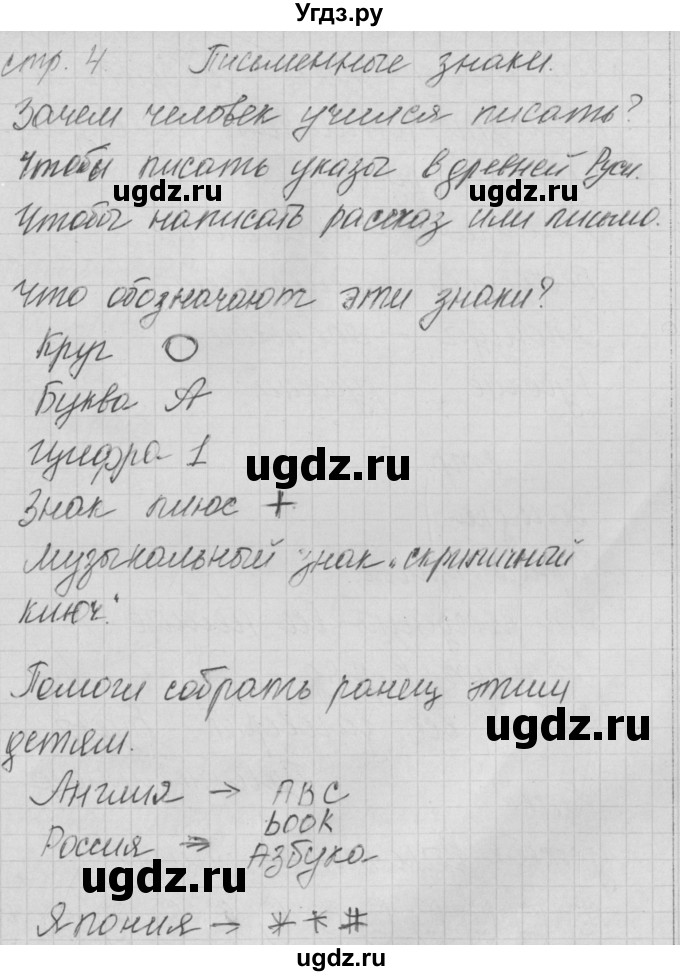 Угдз.ру
стр. 4. Письменные знаки.
Зачем человек учился писать?
Чтобы писать указы в древней Руси.
ugdz.ru ugdz.ru
Чтобы написать рассказ или письмо.
Что обозначают эти знаки?
Круг О
Буква А
Цифра 1
ugdz.ru
Знак плюс +
Музыкальный знак „скрипичный
ключ."
Помоги собрать ранец этим
ugdz.ru
детям.
Англия → ABC
book
Россия → Азбука
ugdz.ru
Япония → * * #
ugdz.ru